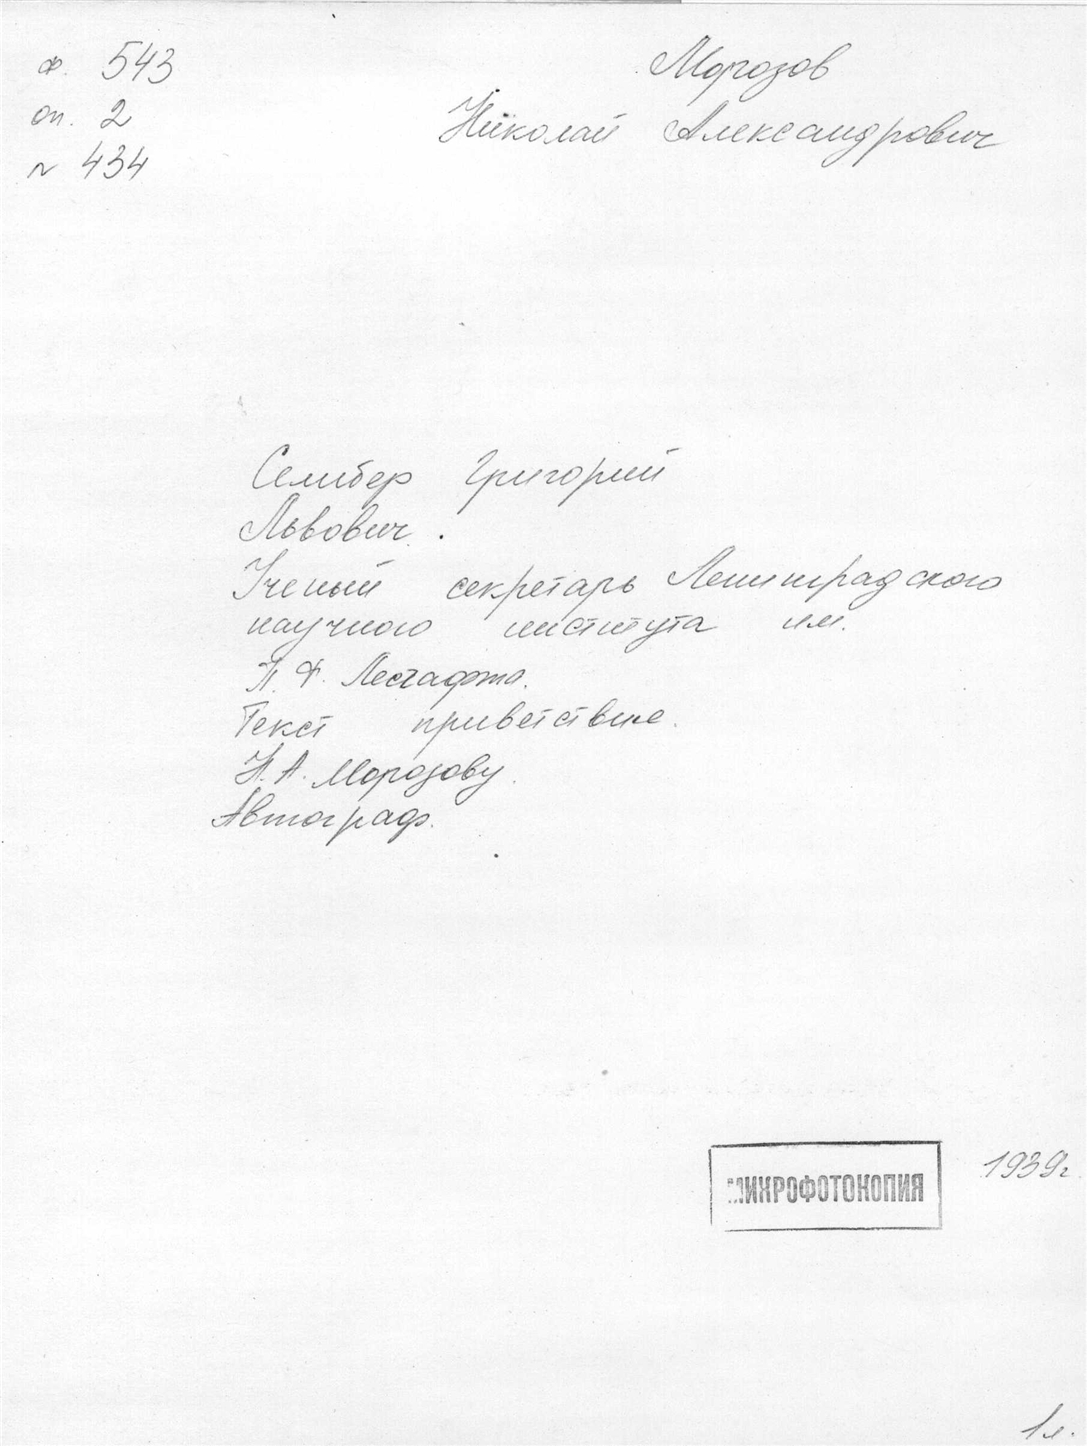 ф. 543
оп. 2
№ 434
Морозов
Николай Александрович
Селибер Григорий
Львович.
Ученый секретарь Ленинградского
научного института им.
П. Ф. Лесгафта.
Текст приветствие.
Н. А. Морозову.
Автограф.
МИКРОФОТОКОПИЯ
1939г.
1л.